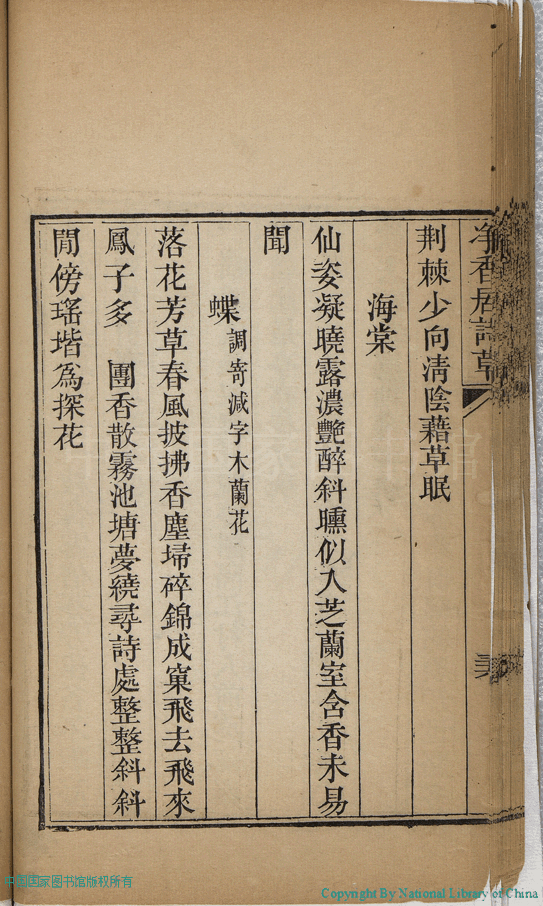 淨香居詩草
荆棘少向清陰藉草眠
海棠
仙姿凝曉露濃艷醉斜曛似入芝蘭室含香未易
聞
蝶調寄減字木蘭花
落花芳草春風披拂香塵埽碎錦成窠飛去飛來
鳳子多　團香散霧池塘夢繞尋詩處整整斜斜
閒傍瑤堦為探花
中国国家图书馆版权所有
Copyright By National Library of China